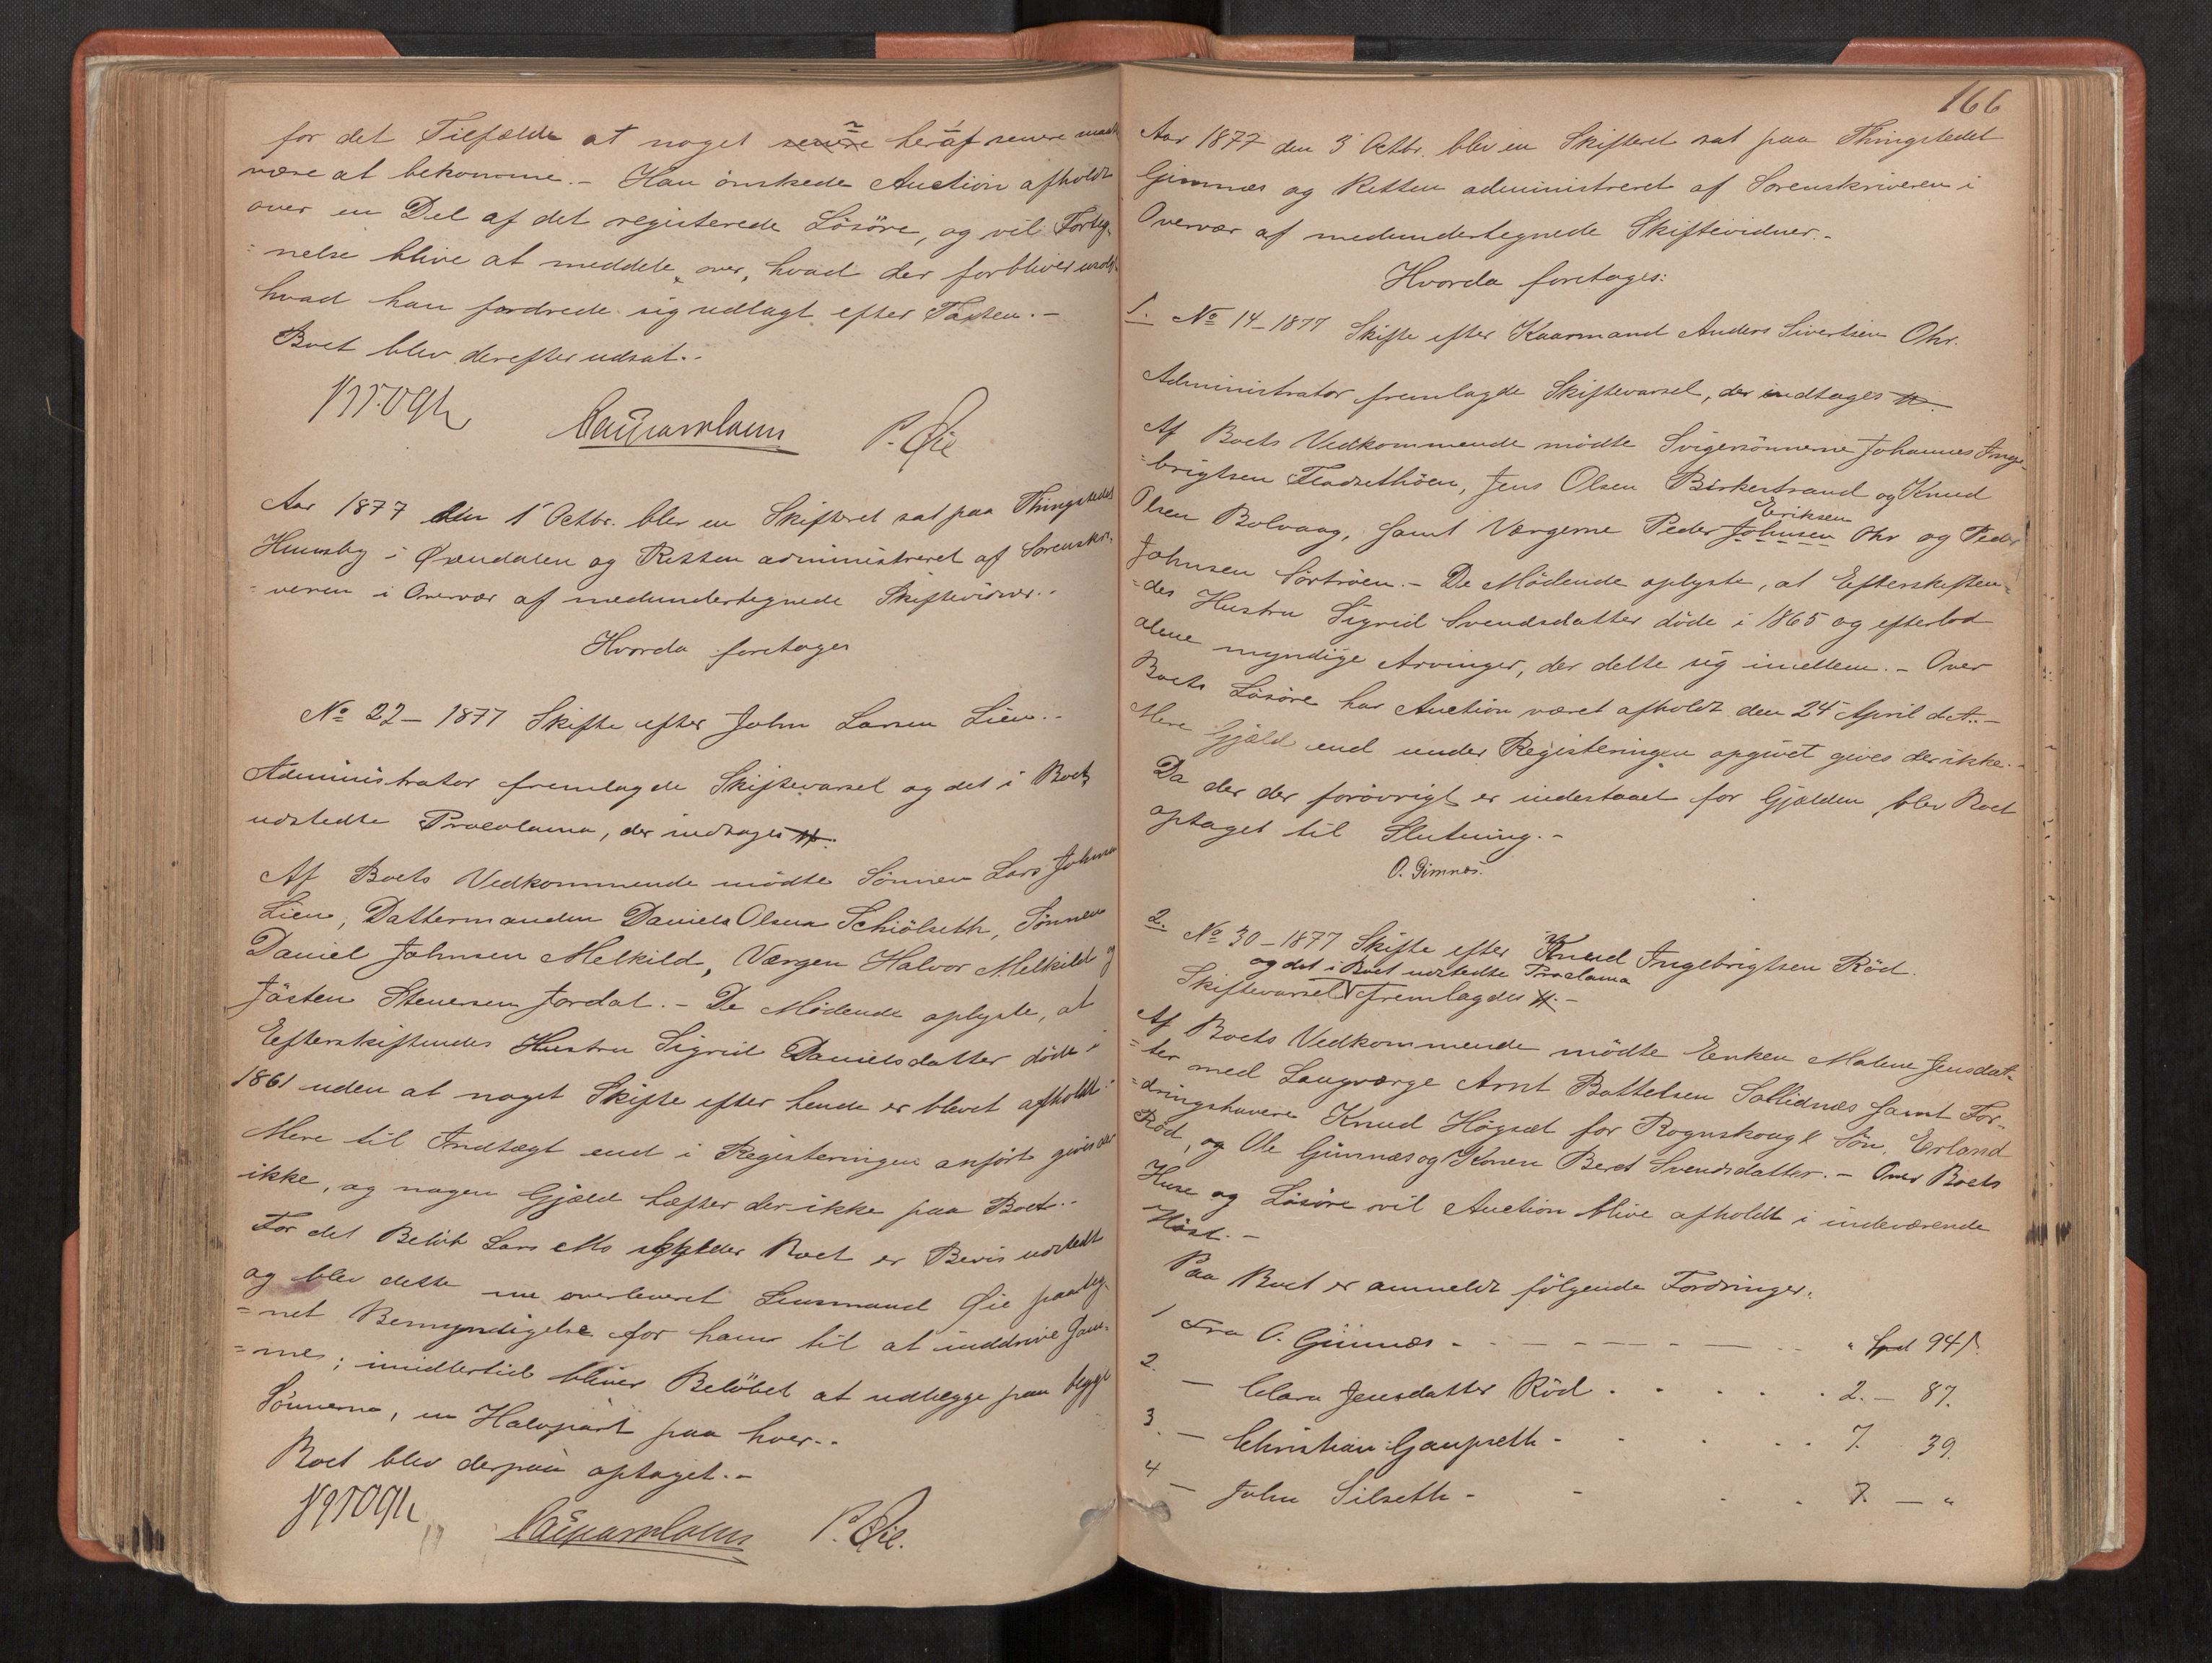 for det Tilfælde at noget senere heraf senere maatte
være at bekomme. - Han önskede Auction afholdt
over en Del af det registerede Lösöre, og vil Forteg-
=nelse blive at meddele over, hvad der forbliver usolgt,
hvad han fordrede sig udlagt efter Taxten. -
Boet blev derefter udsat. -
Krogh P. Øie
Aar 1877 den 1 Octbr. blev en Skifteret sat paa Thingstedet
Huusby i Øxendalen og Retten administreret af Sorenskri-
=veren i Overvær af medundertegnede Skiftevidner. -
Hvorda foretoges
No 22 - 1877 Skifte efter John Larsen Lien. -
Administrator fremlagde Skiftevarsel og det i Boet
udstedte Proclama, der indtages #.
Af Boets Vedkommende mödte Sönnen Lars Johnsen
Lien, Dattermanden Daniels Olsen Schiölseth, Sönnen
Daniel Johnsen Melkild, Værgen Halvor Melkild og
Jösten Stenersen Jordal. - De Mödende oplyste, at
Efterskiftendes Hustru Sigrid Danielsdatter döde i
1861 uden at noget Skifte efter hende er blevet afholdt. -
Mere til Indtægt end i Registeringen anfört gives der
ikke, og nogen Gjæld hæfter der ikke paa Boet. -
For det Belöb Lars skylder Boet er Bevis udstedt
og blev dette nu overleveret Lensmand Øie paateg-
=net Bemyndigelse for ham til at inddrive Sam-
=me; imidlertid bliver Belöbet at udlægge paa begge
Sönnerne, en Halvpart paa hver. -
Boet blev derpaa optaget. -
Krogh P. Øie.
166
Aar 1877 den 3 Octbr. blev en Skifteret sat paa Thingstedet
Gimnæs og Retten administreret af Sorenskriveren i
Overvær af medundertegnede Skiftevidner. -
Hvorda foretoges:
1. No 14 - 1877 Skifte efter Kaarmand Anders Sivertsen Ohr.
Administrator fremlagde Skiftevarsel, der indtages #.
Af Boets Vedkommende mödte Svigersönnerne Johannes Inge-
=brigtsen Fladsethöen, Jens Olsen Birkestrand og Knud
Eriksen
Olsen Bolvaag, samt Værgerne Peder Johnsen Ohr og Peder
Johnsen Sörtröen. - De Mödende oplyste, at Efterskiften-
=des Hustru Sigrid Svendsdatter döde i 1865 og efterlod
alene myndige Arvinger, der delte sig imellem. - Over
Boets Lösöre har Auction været afholdt den 24 April d.A. -
Mere Gjæld end under Registeringen opgivet gives der ikke. -
Da der der forövrigt er indestaaet for Gjælden, blev Boet
optaget til Slutning. -
O. Gimnæs.
2. No 30 - 1877 Skifte efter Knud Ingebrigtsen Röd.
og det i Boet udstedte Proclama
Skiftevarsel fremlagdes #. -
Af Boets Vedkommende mödte Enken Malene Jensdat-
=ter med Laugværge Arnt Bottelsen Sollidnæs samt For-
=dringshavere Knud Högsæt for Rognskoug & Sön, Erland
Röd, og Ole Gimnæs og Konen Beret Svendsdatter. - Over Boets
Huse og Lösöre vil Auction blive afholdt i indeværende
Höst. -
Paa Boet er anmeldt fölgende Fordringer.
1 Fra O. Gimnæs - " Spd 94 s.
2. - Clara Jensdatter Röd . 2. - 87.
3. - Christian Gaupseth - 7. 39.
4 - John Silseth - 7. - "